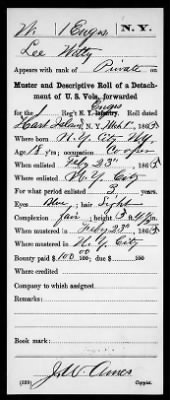 W. 1 Engrs. N.Y.
Lee Witty
Appears with rank of Private on
Muster and Descriptive Roll of a Detach-
ment of U. S. Vols. forwarded
Engrs
for the 1 Reg't N.Y. Infantry. Roll dated
Hart Island, N.Y. Mch 1, 1865
Where born N.Y. City N.Y.
Age 18 y'rs; occupation Cooper
When enlisted Feby 23d, 1865
Where enlisted N.Y. City
For what period enlisted 3 years.
Eyes Blue; hair Light
Complexion fair; height 5 ft. in.
When mustered in Feby 23d, 1865
Where mustered in N.Y. City
Bounty paid $100 00/100; due $ 100
Where credited
Company to which assigned
Remarks:
Book mark:
J.W. Ames
Copyist.